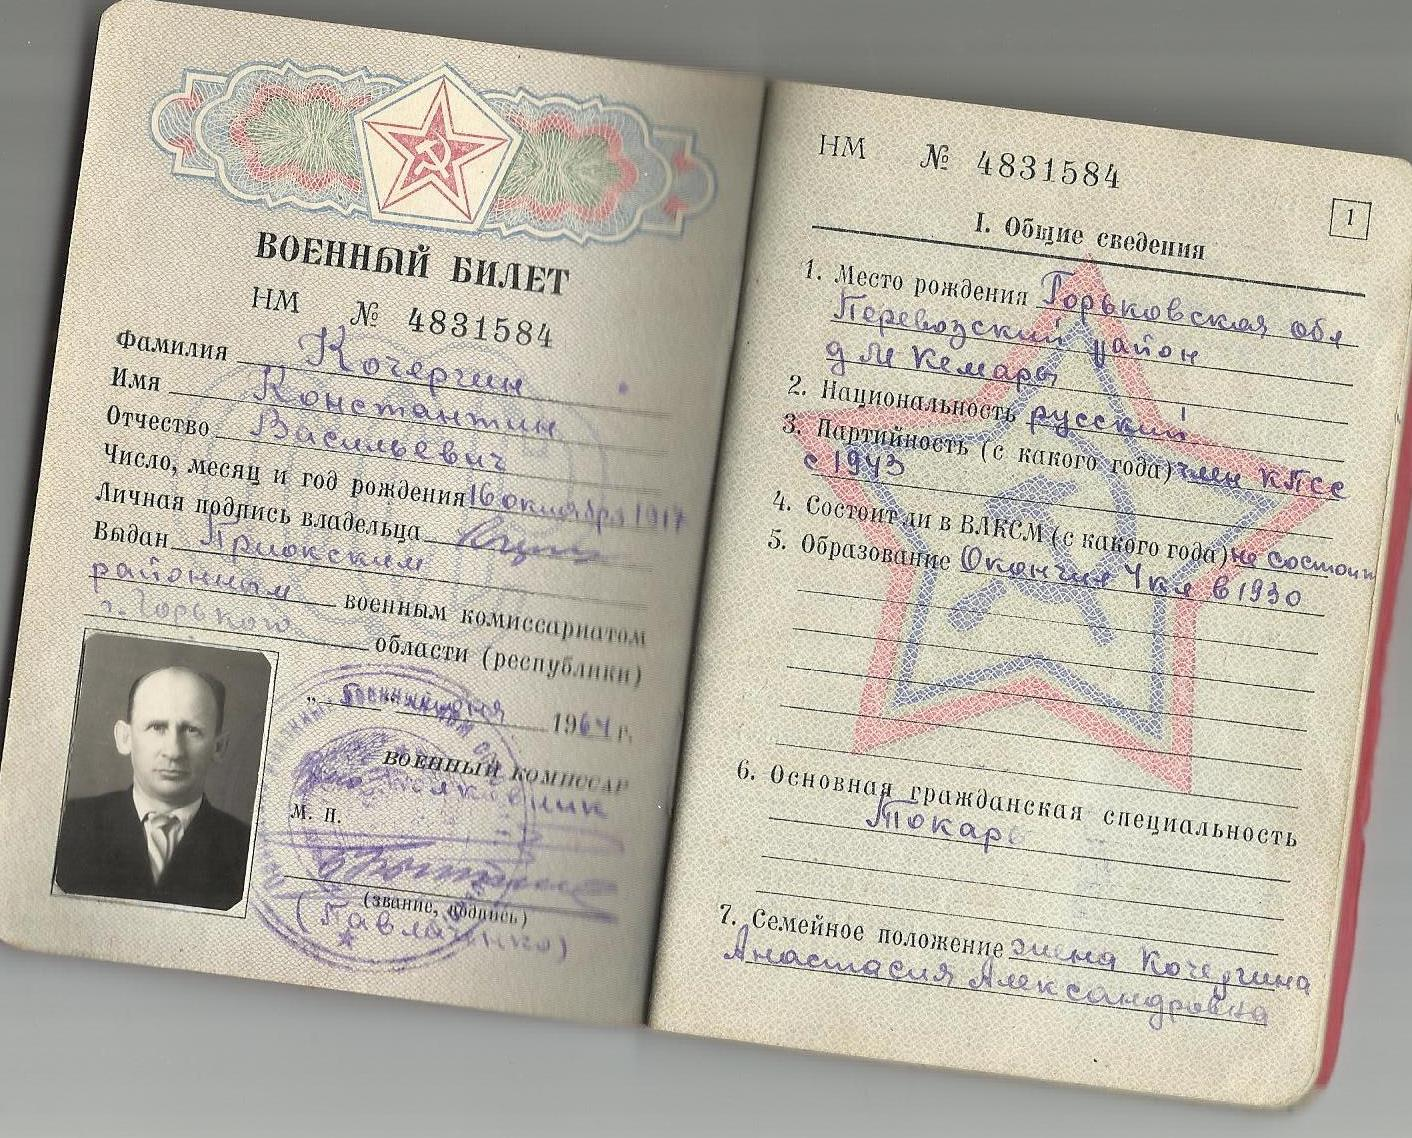 ВОЕННЫЙ БИЛЕТ
НМ № 4831584
Фамилия Кочергин
Имя Константин
Отчество Васильевич
Число, месяц и год рождения 16 октября 1917
Личная подпись владельца
Выдан Приокским
районным военным комиссариатом
г. Горького области (республики)
" июня 1964 г.
ВОЕННЫЙ КОМИССАР
М. П.
(звание, подпись)
(Павляченко)
НМ № 4831584
1
I. Общие сведения
1. Место рождения Горьковская обл
Перевозский район
д М Кемары
2. Национальность русский
3. Партийность (с какого года) член КПСС
с 1943
4. Состоит ли в ВЛКСМ (с какого года) не состоит
5. Образование Окончил 4 кл в 1930
6. Основная гражданская специальность
Токарь
7. Семейное положение жена Кочергина
Анастасия Александровна